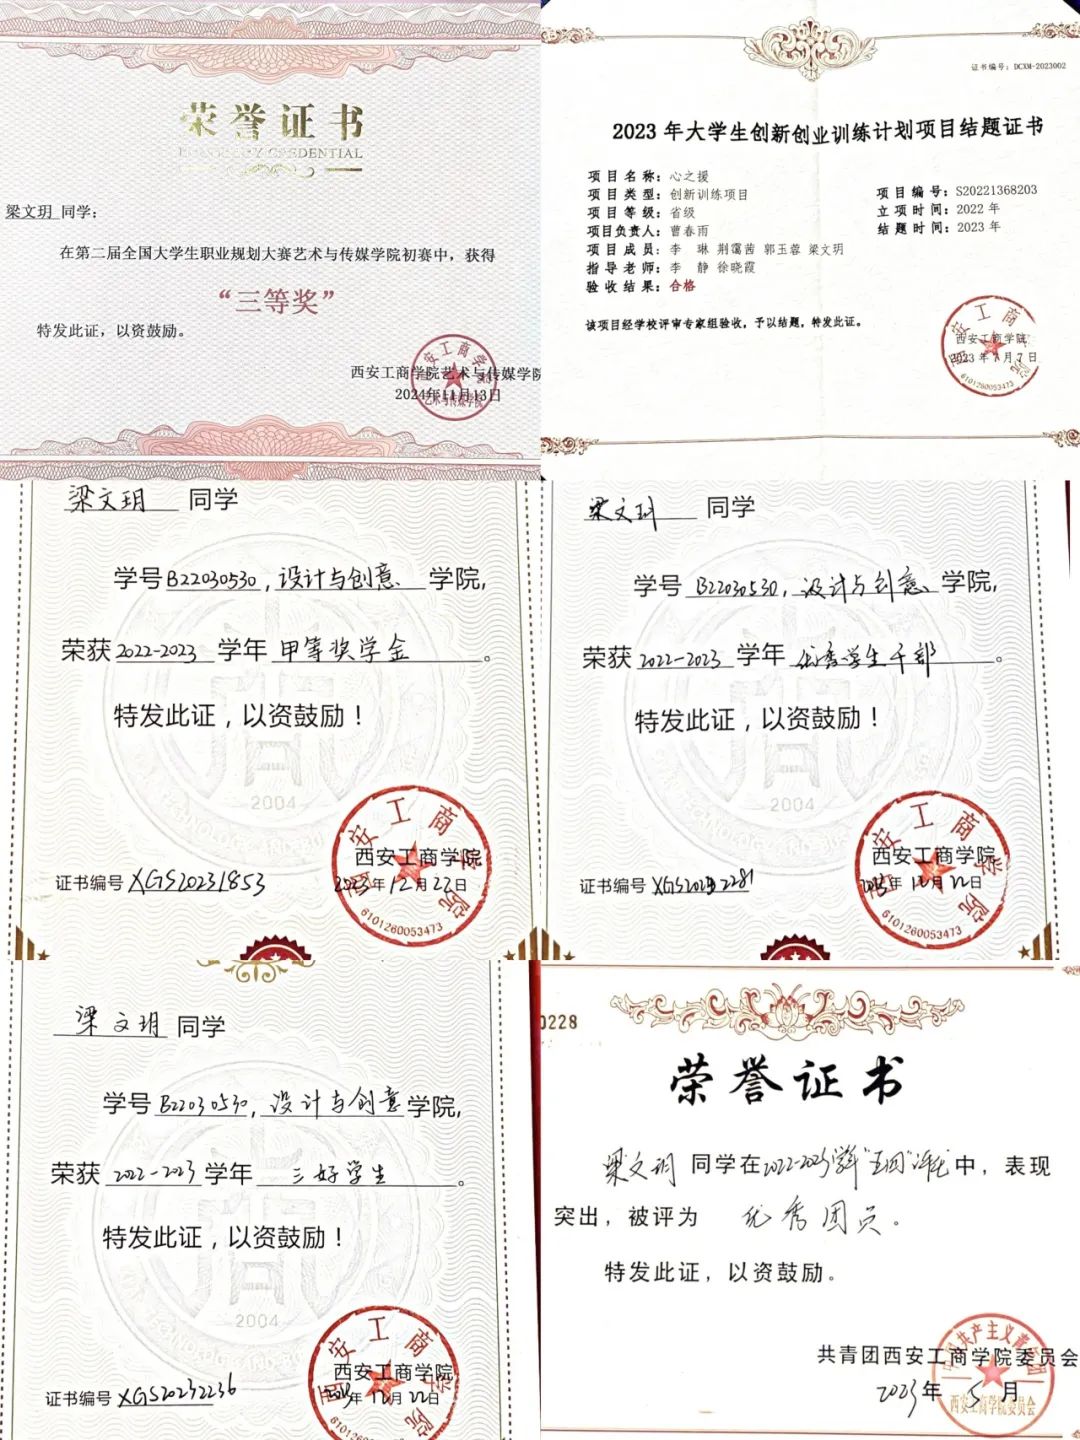 荣誉证书
HONORARY CREDENTIAL
梁文玥 同学：
在第二届全国大学生职业规划大赛艺术与传媒学院初赛中，获得
“三等奖”
特发此证，以资鼓励。
西安工商学院艺术与传媒学院
2024年11月13日
证书编号：DCXM-2023002
2023 年大学生创新创业训练计划项目结题证书
项目名称：心之援
项目类型：创新训练项目
项目等级：省级
项目负责人：曹春雨
项目成员：李 琳 荆霭茜 郭玉蓉 梁文玥
指导老师：李 静 徐晓霞
验收结果：合格
项目编号：S20221368203
立项时间：2022 年
结题时间：2023 年
该项目经学校评审专家组验收，予以结题，特发此证。
西安工商学院
2023年 月7日
6101260053473
梁文玥 同学
学号B22030530，设计与创意 学院，
荣获2022-2023 学年 甲等奖学金 。
特发此证，以资鼓励！
2004
西安工商学院
证书编号 XGS20231853
2023年12月22日
6101260053473
梁文玥 同学
学号 B22030530，设计与创意 学院，
荣获 2022-2023 学年 优秀学生干部 。
特发此证，以资鼓励！
2004
西安工商学院
证书编号 XGS20232281
2023年12月22日
6101260053473
梁文玥 同学
学号 B22030530，设计与创意 学院，
荣获 2022-2023 学年 三好学生 。
特发此证，以资鼓励！
2004
西安工商学院
证书编号 XGS20232236
2023年12月22日
0228
荣誉证书
梁文玥 同学在2022-2023学年“五四”评优中，表现
突出，被评为 优秀团员。
特发此证，以资鼓励。
共青团西安工商学院委员会
2023年 5 月